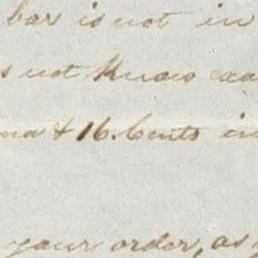 bar is not in
s not know exa
& 16. Cents in
your order, as